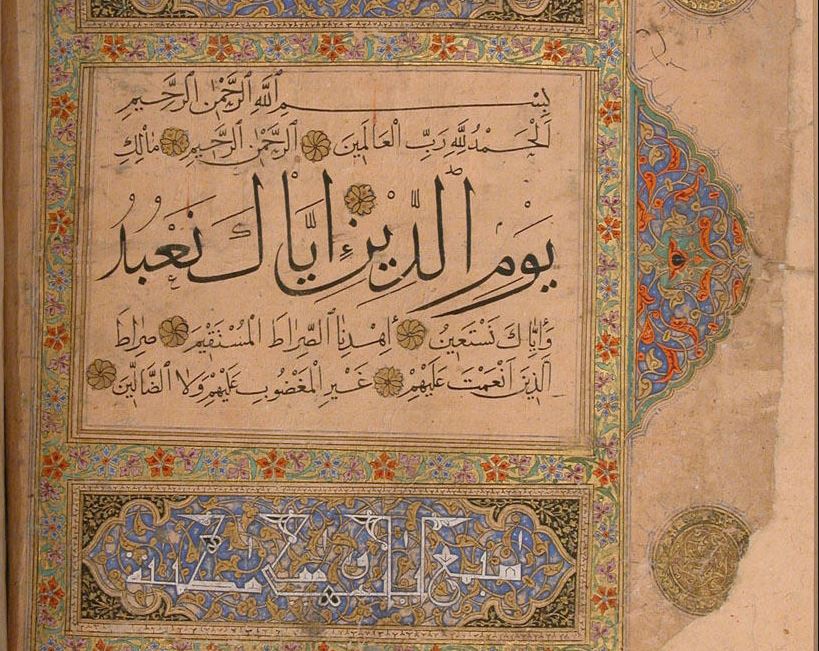 بِسْمِ اللَّهِ الرَّحْمٰنِ الرَّحِيمِ
اَلْحَمْدُ لِلَّهِ رَبِّ الْعَالَمِينَ الرَّحْمٰنِ الرَّحِيمِ مَالِكِ
يَوْمِ الدِّينِ اِيَّاكَ نَعْبُدُ
وَاِيَّاكَ نَسْتَعِينُ اِهْدِنَا الصِّرَاطَ الْمُسْتَقِيمَ صِرَاطَ
الَّذِينَ اَنْعَمْتَ عَلَيْهِمْ غَيْرِ الْمَغْضُوبِ عَلَيْهِمْ وَلَا الضَّالِّينَ